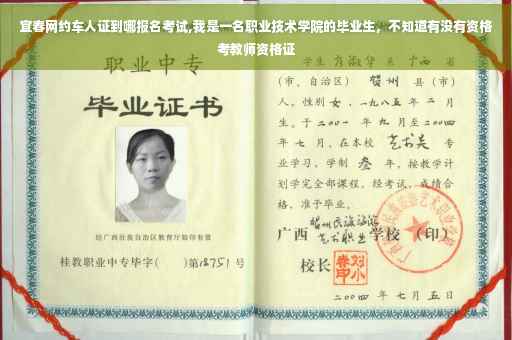 宜春网约车人证到哪报名考试,我是一名职业技术学院的毕业生，不知道有没有资格
考教师资格证
职业中专
毕业证书
经广西壮族自治区教育厅验印有效
桂教职业中专毕字（　）第12751号
省
（市、自治区）贺州县（市）
人，性别女，一九八五年二月
生。于二〇〇一年九月至二〇〇四
年七月，在本校艺术类专
业学习，学制叁年，按教学计
划学完全部课程，经考试，成绩合
格，准予毕业。
广西 艺术职业学校（印）
校长
二〇〇四年七月五日